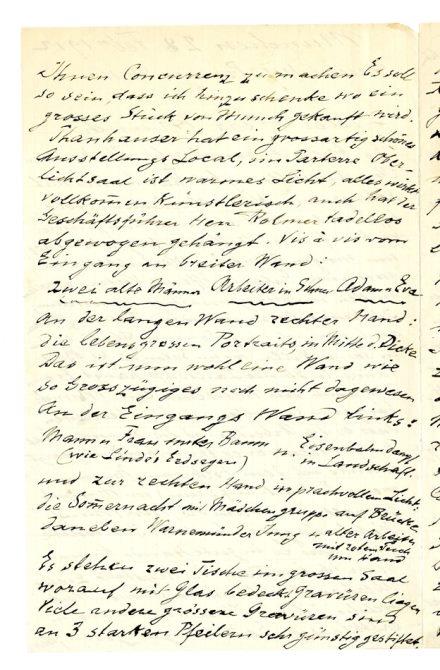 Ihnen Concurrenz zu machen Es soll
so sein, dass ich hinzuschenke wo ein
grosses Stück von Munch gekauft wird.
Thanhauser hat ein grossartig schönes
Ausstellungs Local, im Parterre Ober-
lichtsaal ist warmes Licht, alles wirkt
vollkommen künstlerisch, auch hat der
Geschäftsführer Herr Holmer tadellos
abgewogen gehängt. Vis à vis vom
Eingang an breiter Wand:
Zwei alte Männer Arbeiter im Schnee Adam u Eva
An der langen Wand rechter Hand:
die lebensgrossen Portraits in Mitte d. Dicke
Das ist nun wohl eine Wand wie
so Grosszügiges noch nicht dagewesen
An der Eingangs Wand links:
Mann u Frau unter Baum u. Eisenbahndampf
(wie Linde's Erdsegen) in Landschaft.
und zur rechten Hand in prachvollem Licht:
die Sommernacht mit Mädchengruppe auf Brücke
daneben Warnemünder Junge u alter Arbeiter
mit rotem Tuch
um Hand
Es stehen zwei Tische im grossen Saal
worauf mit Glas bedeckt Gravüren liegen
Viele andere grössere Gravüren sind
an 3 starken Pfeilern sehr günstig